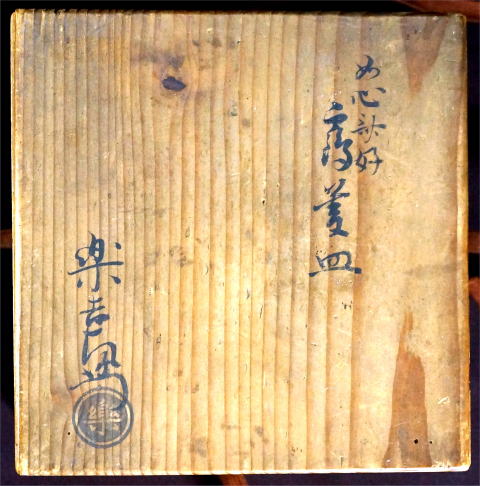 如心斎好
鶴菱皿
楽吉左衛門
樂